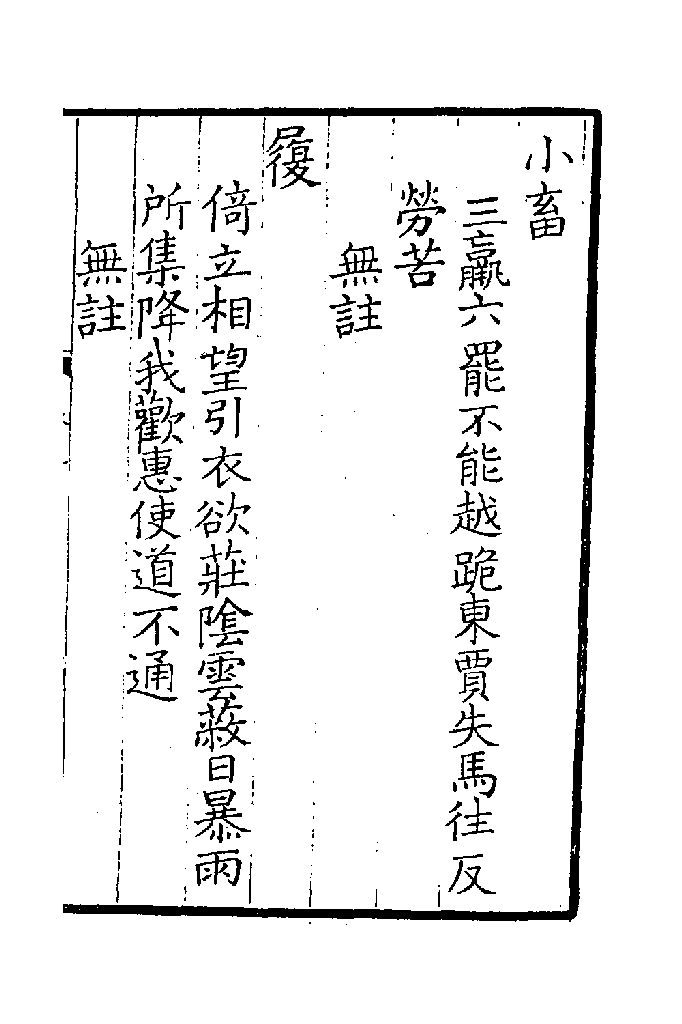 小畜
三羸六罷不能越跪東賈失馬往反
勞苦
無註
履
倚立相望引衣欲莊隂雲蔽日暴雨
所集降我歡惠使道不通
無註